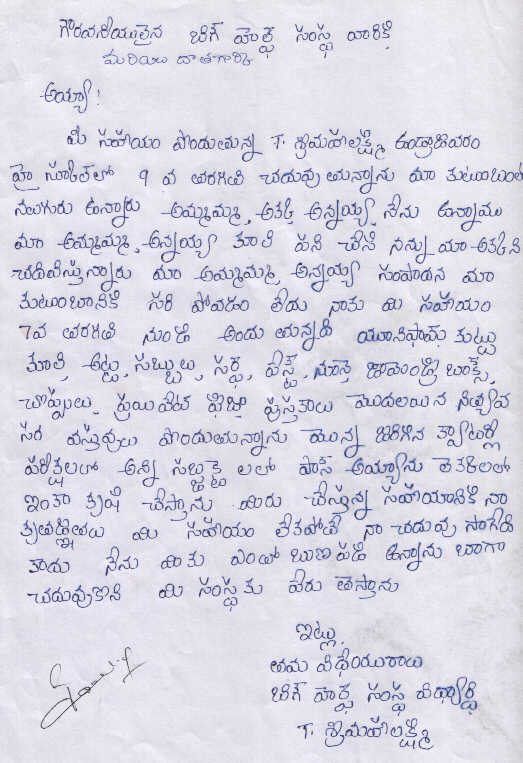 గౌరవనీయులైన బిగ్ హెల్ప్ సంస్థ వారికి
మరియు దాతగార్కి
అయ్యా!
మీ సహాయం పొందుతున్న T. శ్రీమహలక్ష్మి ఉండ్రాజవరం
హై స్కూల్‌లో 9 వ తరగతి చదువు తున్నాను మా కుటుంబంలో
నలుగురు ఉన్నారు అమ్మమ్మ, అక్క, అన్నయ్య, నేను ఉన్నాము
మా అమ్మమ్మ, అన్నయ్య కూలి పని చేసి నన్ను మా అక్కని
చదివిస్తున్నారు మా అమ్మమ్మ, అన్నయ్య సంపాదన మా
కుటుంబానికి సరి పోవడం లేదు నాకు మీ సహాయం
7వ తరగతి నుండి అందు తున్నది యూనిఫామ్ కుట్టు
కూలి, అట్లు, సబ్బులు, సర్ఫ్, పేస్ట్, నూనె జామెండ్రి బాక్స్,
చెప్పులు, ప్రయివేట్ ఫీజు పుస్తకాలు మొదలయిన నిత్యావ
సర వస్తువులు పొందుతున్నాను మొన్న జరిగిన క్వాటర్లి
పరిక్షలలో అన్ని సబ్జక్ట్ లలో పాస్ అయ్యాను తెలికలలో
ఇంకా కృషి చేస్తాను మీరు చేస్తున్న సహాయానికి నా
కృతజ్ఞతలు మీ సహాయం లేకపోతే నా చదువు సాగేది
కాదు నేను మీకు ఎంతో ఋణ పడి ఉన్నాను బాగా
చదువుకొని మీ సంస్థ కు పేరు తెస్తాను
ఇట్లు,
తమ విధేయురాలు
బిగ్ హెల్ప్ సంస్థ విద్యార్థి
T. శ్రీమహలక్ష్మి